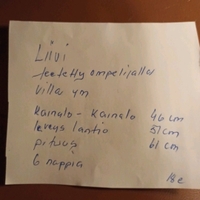 Liivi
teetetty ompelijalla
villaa ym
kainalo - kainalo 46 cm
leveys lantio 51 cm
pituus 61 cm
6 nappia
18 e